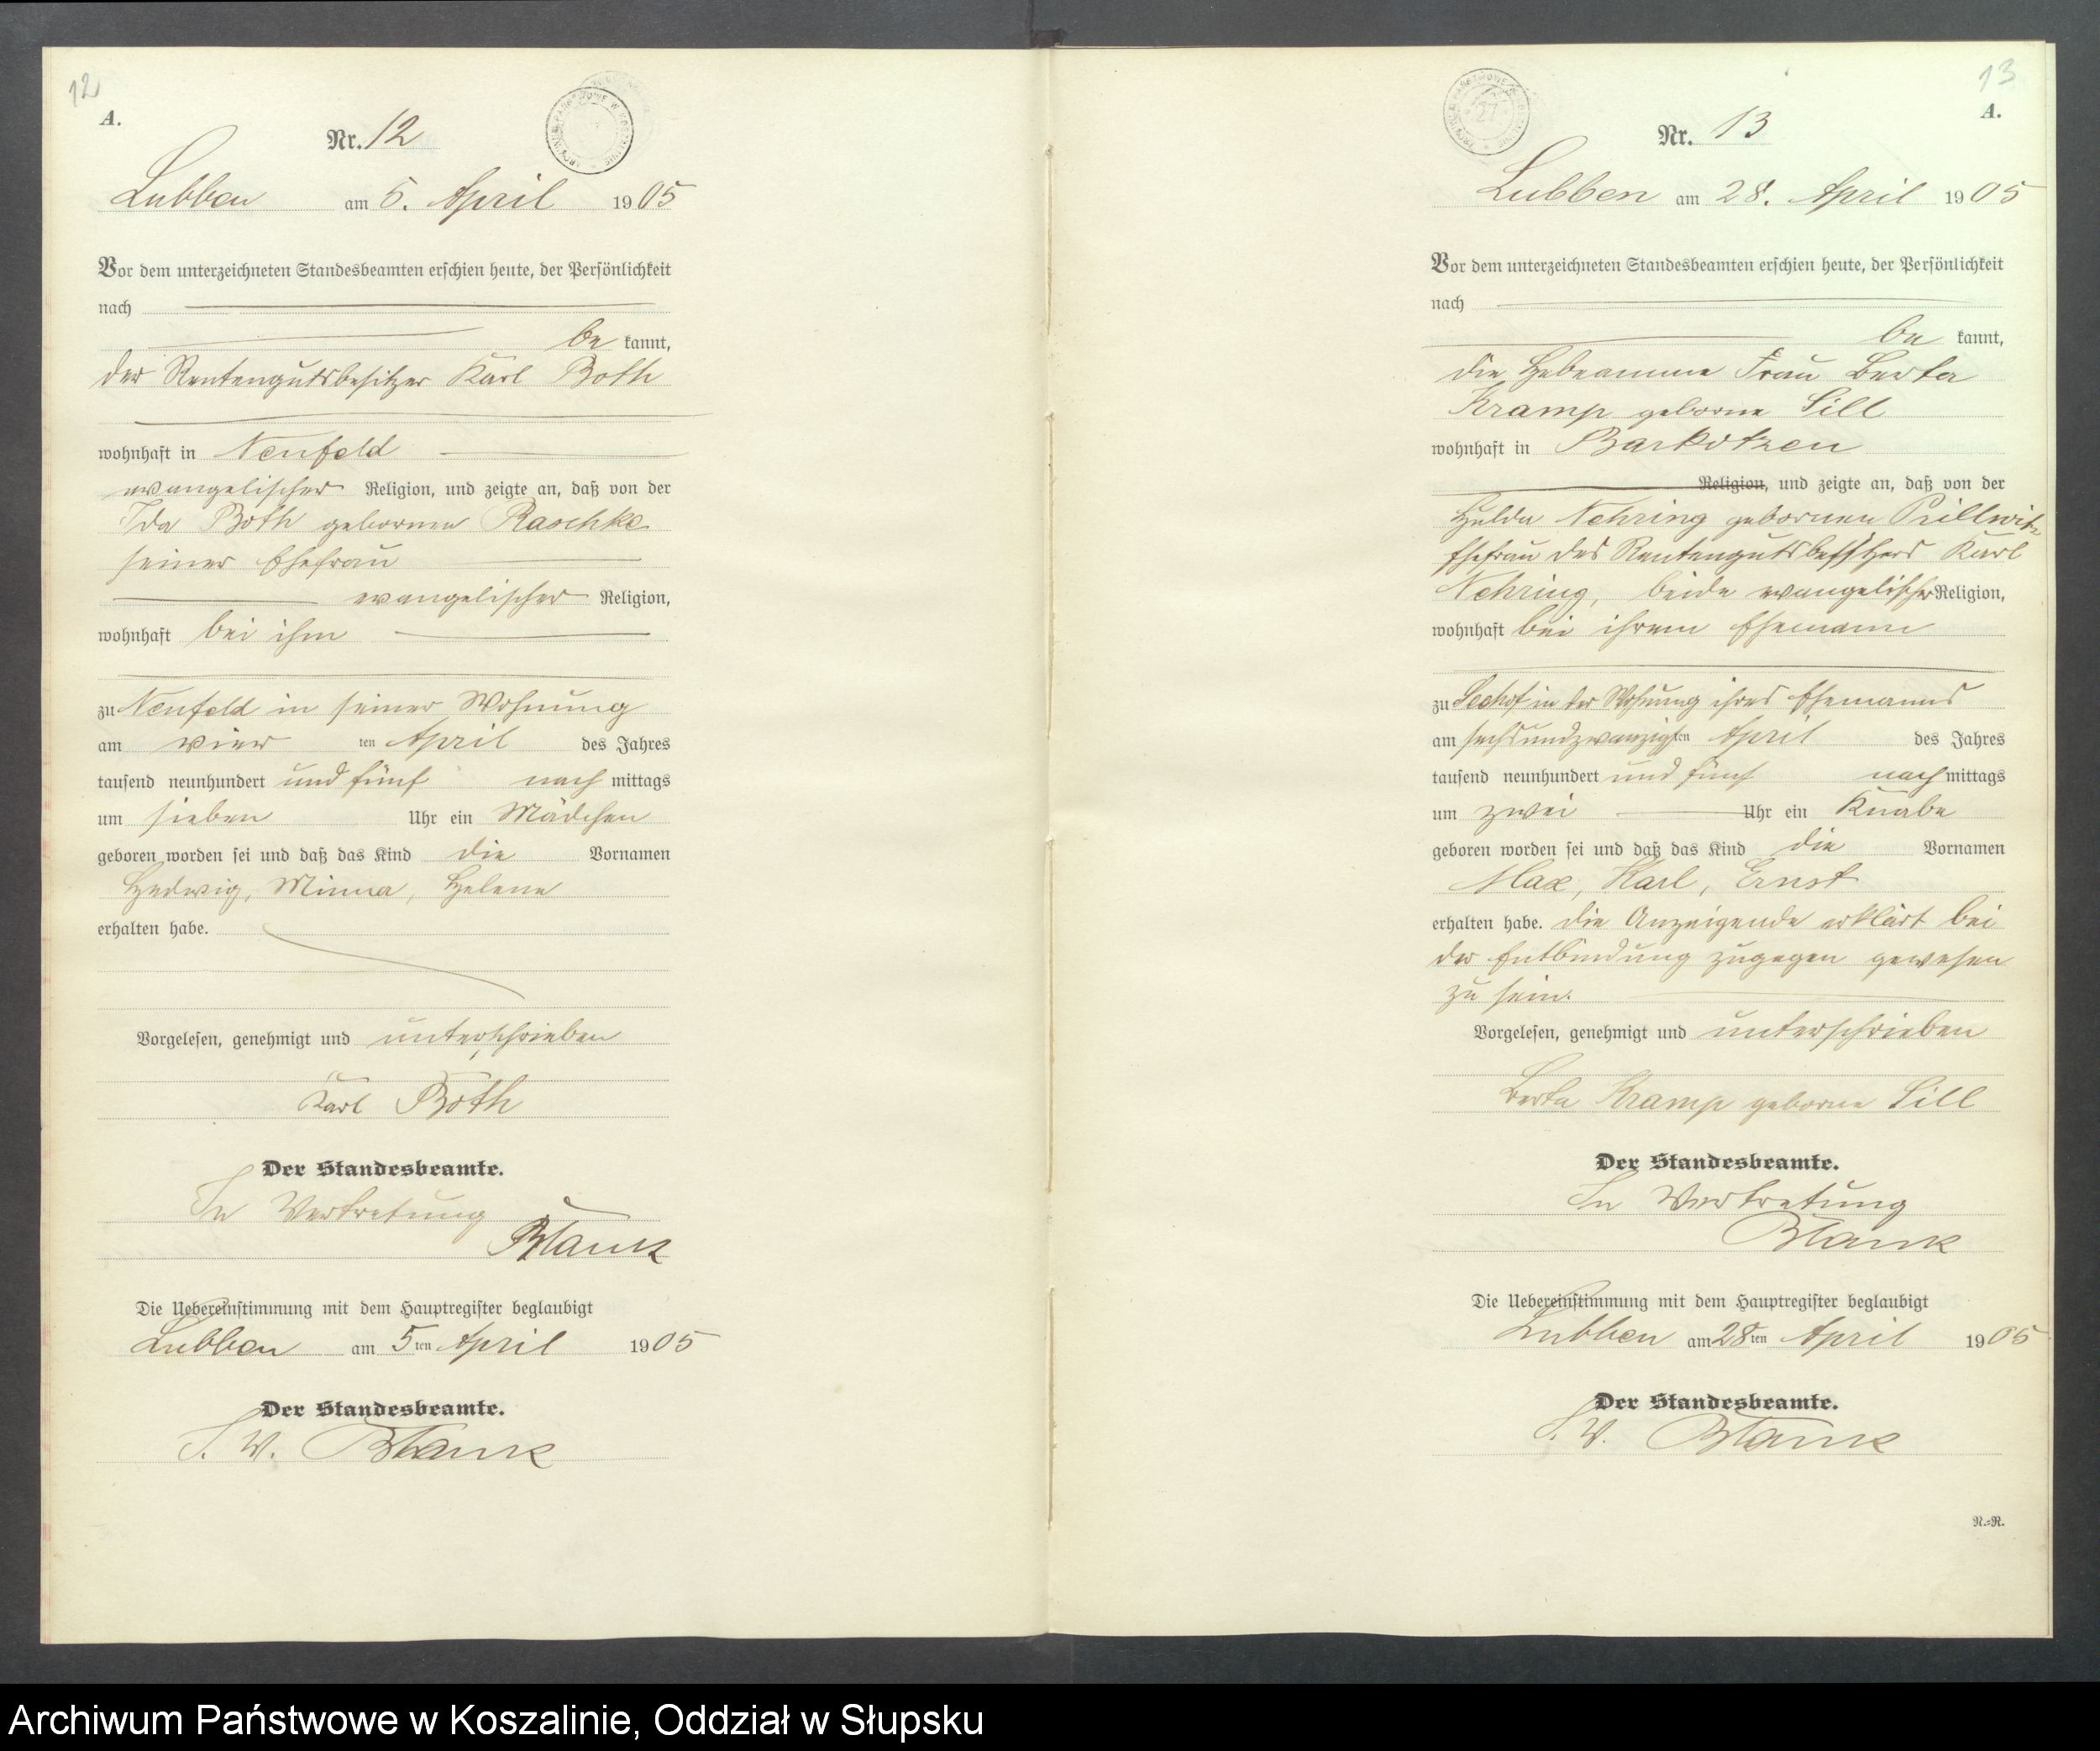 12
A.
Nr. 12
Lubben am 5. April 1905
Vor dem unterzeichneten Standesbeamten erschien heute, der Persönlichkeit
nach
be kannt,
der Rentengutsbesitzer Karl Both
wohnhaft in Neufeld
evangelischer Religion, und zeigte an, daß von der
Ida Both gebornen Raschke
seiner Ehefrau
evangelischer Religion,
wohnhaft bei ihm
zu Neufeld in seiner Wohnung
am vier ten April des Jahres
tausend neunhundert und fünf nach mittags
um sieben Uhr ein Mädchen
geboren worden sei und daß das Kind die Vornamen
Hedwig, Minna, Helene
erhalten habe.
Vorgelesen, genehmigt und unterschrieben
Karl Both
Der Standesbeamte.
In Vertretung
Blank
Die Uebereinstimmung mit dem Hauptregister beglaubigt
Lubben am 5ten April 1905
Der Standesbeamte.
I. V. Blank
13
A.
Nr. 13
Lubben am 28. April 1905
Vor dem unterzeichneten Standesbeamten erschien heute, der Persönlichkeit
nach
be kannt,
die Hebeamme Frau Berta
Kramp geborne Sill
wohnhaft in Barkotzen
Religion, und zeigte an, daß von der
Hulda Nehring gebornen Prillwitz
Ehefrau des Rentengutsbesitzers Karl
Nehring, beide evangelischer Religion,
wohnhaft bei ihrem Ehemann
zu Seehof in der Wohnung ihres Ehemanns
am sechsundzwanzigsten April des Jahres
tausend neunhundert und fünf nach mittags
um zwei Uhr ein Knabe
geboren worden sei und daß das Kind die Vornamen
Max, Karl, Ernst
erhalten habe. Die Anzeigende erklärt bei
der Entbindung zugegen gewesen
zu sein.
Vorgelesen, genehmigt und unterschrieben
Berta Kramp geborne Sill
Der Standesbeamte.
In Vertretung
Blank
Die Uebereinstimmung mit dem Hauptregister beglaubigt
Lubben am 28ten April 1905
Der Standesbeamte.
I. V. Blank
N.=R.
Archiwum Państwowe w Koszalinie, Oddział w Słupsku